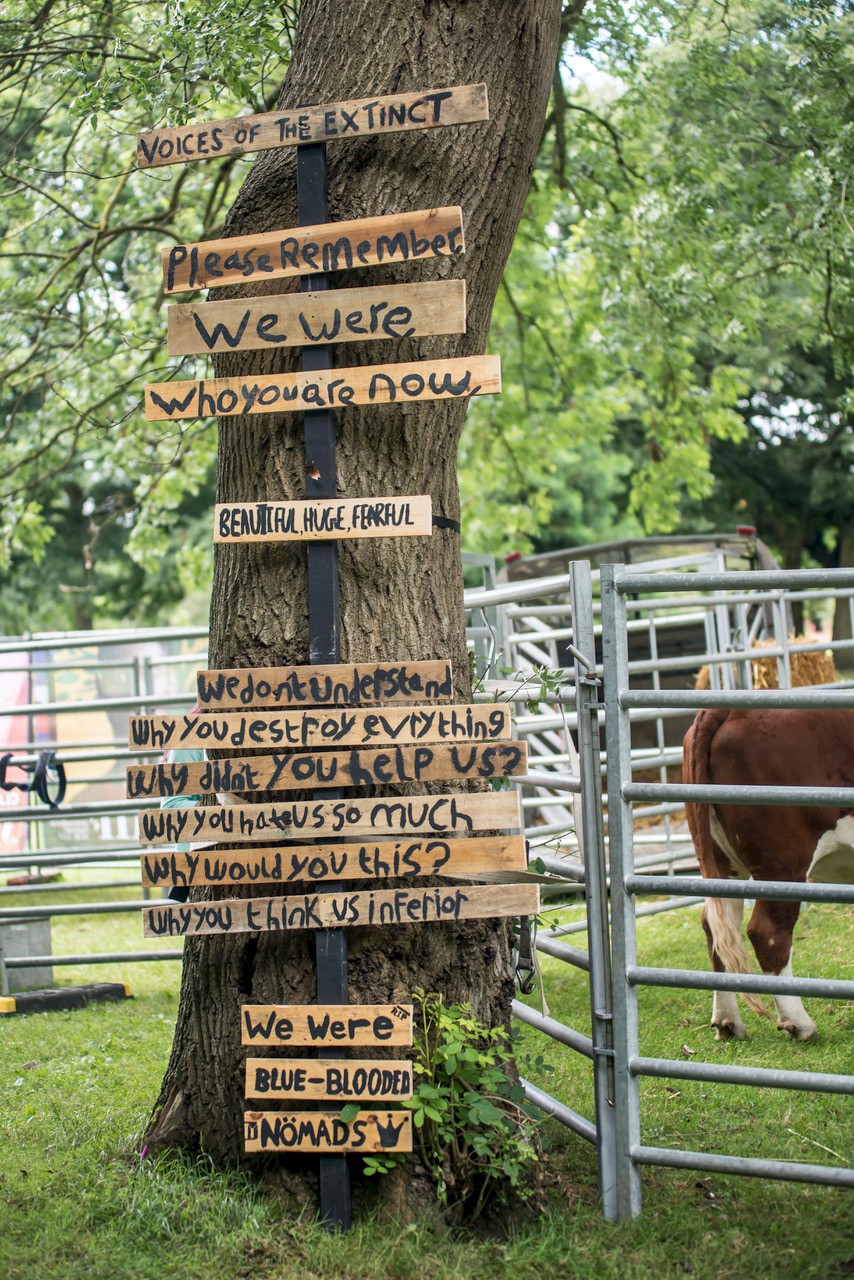 VOICES OF THE EXTINCT
Please Remember,
We were
who you are now,
BEAUTIFUL, HUGE, FEARFUL
We don't understand
why you destroy evrything
why didn't you help us?
why you hate us so much
why would you this?
why you think us inferior
We were RIP
BLUE-BLOODED
NÖMADS